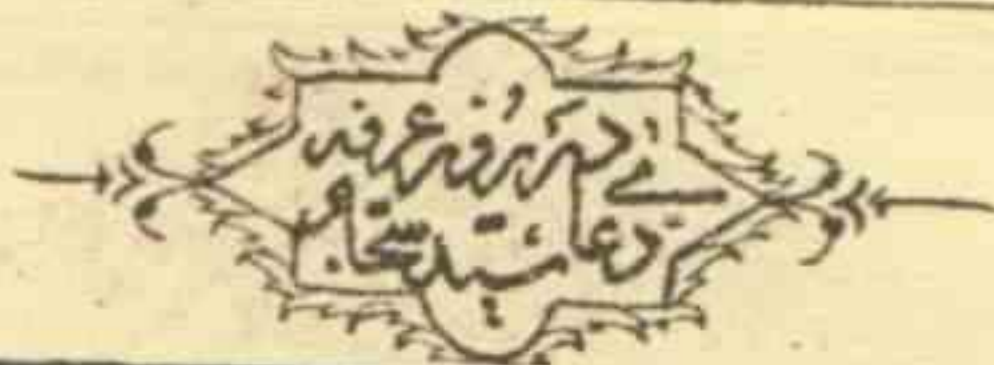 دعاے سید سجاد
در روز عرفه